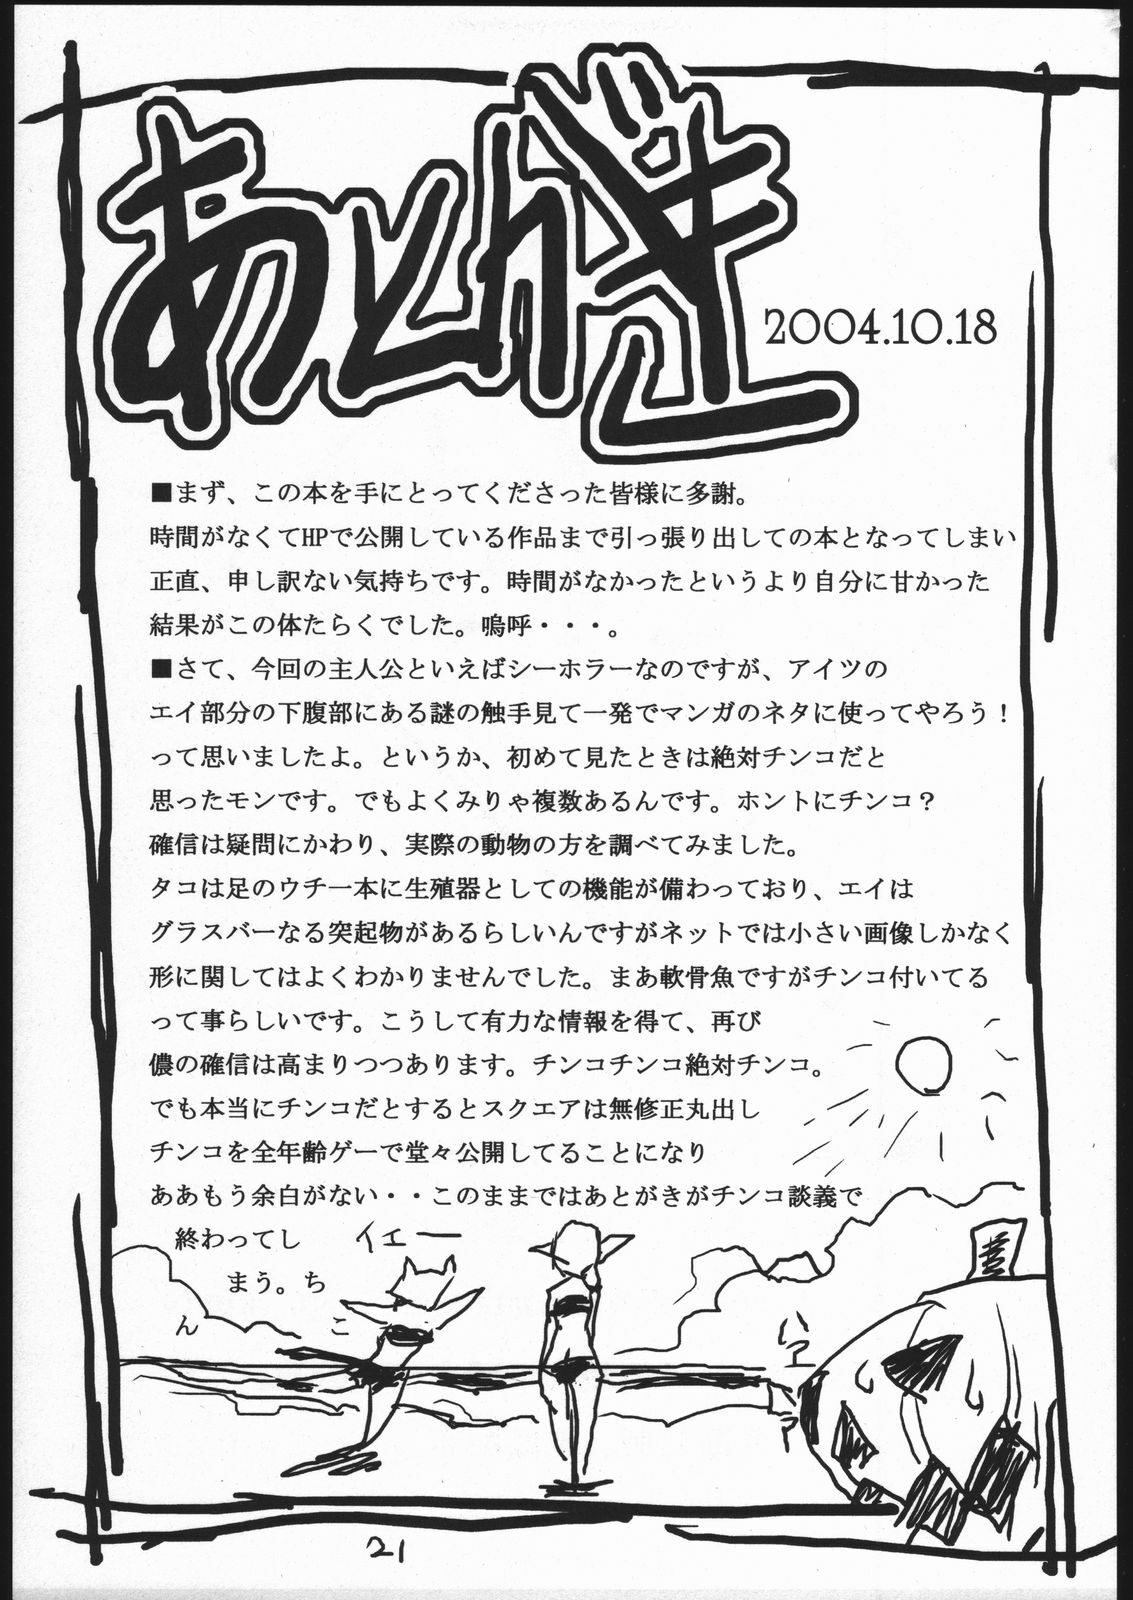 あとがき
2004.10.18
■まず、この本を手にとってくださった皆様に多謝。
時間がなくてHPで公開している作品まで引っ張り出しての本となってしまい
正直、申し訳ない気持ちです。時間がなかったというより自分に甘かった
結果がこの体たらくでした。嗚呼・・・。
■さて、今回の主人公といえばシーホラーなのですが、アイツの
エイ部分の下腹部にある謎の触手見て一発でマンガのネタに使ってやろう！
って思いましたよ。というか、初めて見たときは絶対チンコだと
思ったモンです。でもよくみりゃ複数あるんです。ホントにチンコ？
確信は疑問にかわり、実際の動物の方を調べてみました。
タコは足のウチ一本に生殖器としての機能が備わっており、エイは
グラスバーなる突起物があるらしいんですがネットでは小さい画像しかなく
形に関してはよくわかりませんでした。まあ軟骨魚ですがチンコ付いてる
って事らしいです。こうして有力な情報を得て、再び
儂の確信は高まりつつあります。チンコチンコ絶対チンコ。
でも本当にチンコだとするとスクエアは無修正丸出し
チンコを全年齢ゲーで堂々公開してることになり
ああもう余白がない・・このままではあとがきがチンコ談義で
終わってし
まう。ち
ん こ
イエー
ハァ
ハァ
21